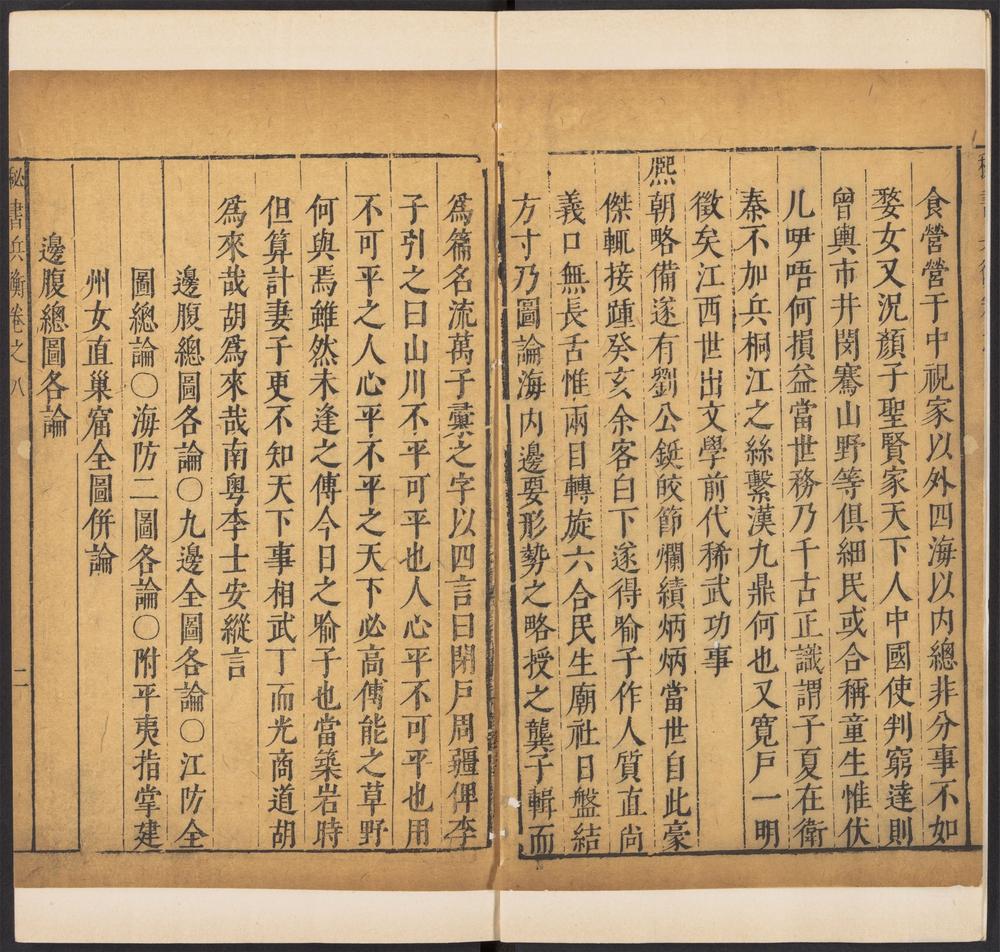 食營營于中視家以外四海以内總非分事不如
婺女又況顏子聖賢家天下人中國使判窮達則
曾輿市井閔騫山野等俱細民或合稱童生惟伏
几咿唔何損益當世務乃千古正識謂子夏在衛
秦不加兵桐江之絲繫漢九鼎何也又寬戸一明
徵矣江西世出文學前代稀武功事
熈朝略備遂有劉公鋋皎節爛績炳炳當世自此豪
傑輒接踵癸亥余客白下遂得喻子作人質直尚
義口無長舌惟兩目轉旋六合民生廟社日盤結
方寸乃圖論海内邊要形勢之略授之龔子輯而
爲篇名流萬子彙之字以四言曰閉戸周疆俾李
子引之曰山川不平可平也人心平不可平也用
不可平之人心平不平之天下必高傅能之草野
何與焉雖然未逢之傅今日之喻子也當築岩時
但算計妻子更不知天下事相武丁而光商道胡
爲來哉胡爲來哉南粤李士安縱言
邊腹總圖各論〇九邊全圖各論〇江防全
圖總論〇海防二圖各論〇附平夷指掌建
州女直巢窟全圖併論
邊腹總圖各論
秘書兵衡卷之八
二